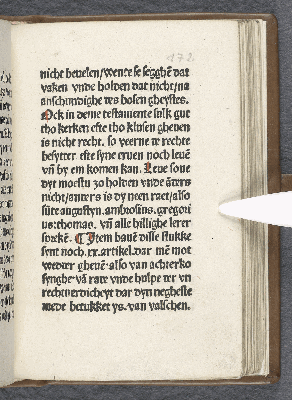 172
nicht beuelen/wente se segghē dat
vaken vnde holden dat nicht/na
anschundighe des bosen gheystes.
Ock in deme testamente salk gut
tho kerken efte tho klusen gheuen
is nicht recht. so veerne de rechte
besytter efte syne eruen noch leuē
vñ by em komen kan. Leue sone
dyt mostu zo holden vnde āders
nicht/anders is dy neen raet/also
sūte augustyn. ambrosius. gregori
us. thomas. vñ alle hillighe lerer
sprekē. ¶ Item bauē disse stukke
sent noch .xx. artikel. dar mē mot
wedder gheuē. also van achterko
synghe vā rade vnde hulpe der vn
rechuerdicheyt dar dyn negheste
mede bedukket ys. van valschen.